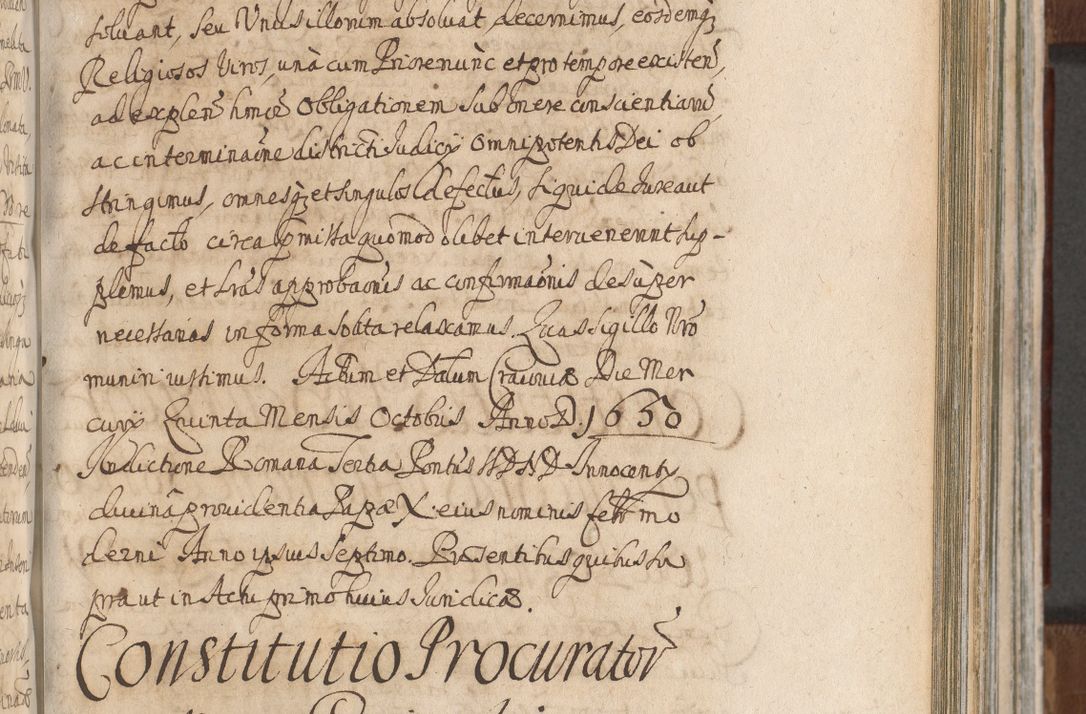 soluant, seu Unus illorum absoluat, decernimus, eosdemq;
Religiosos Viros, unà cum Priore nunc et pro tempore existen̄,
ad explen̄ hmōi Obligationem sub onere conscientiarū
ac interminaōne districti Iudicÿ Omnipotentis Dei ob
stringimus, omnesq; et singulos defectus, siqui de Iure aut
de facto circa p̄missa quomodolibet interuenerint sup-
plemus, et Lrās approbaōnis ac confirmaōnis desùper
necessarias in forma solita relaxamus. Quas sigillo Nrō
muniri iussimus. Actum et Datum Cracouiæ Die Mer
curÿ Quinta Mensis Octobris Anno D. 1650
Indictione Romana Tertia Pontūs SD ND Innocentÿ
diuinâ prouidentia Papæ X. eius nominis felr̄ mo
derni Anno ipsius Septimo. Præsentibus quibus su
pra ut in Actu primo huius Juridicæ.
Constitutio Procurator̄